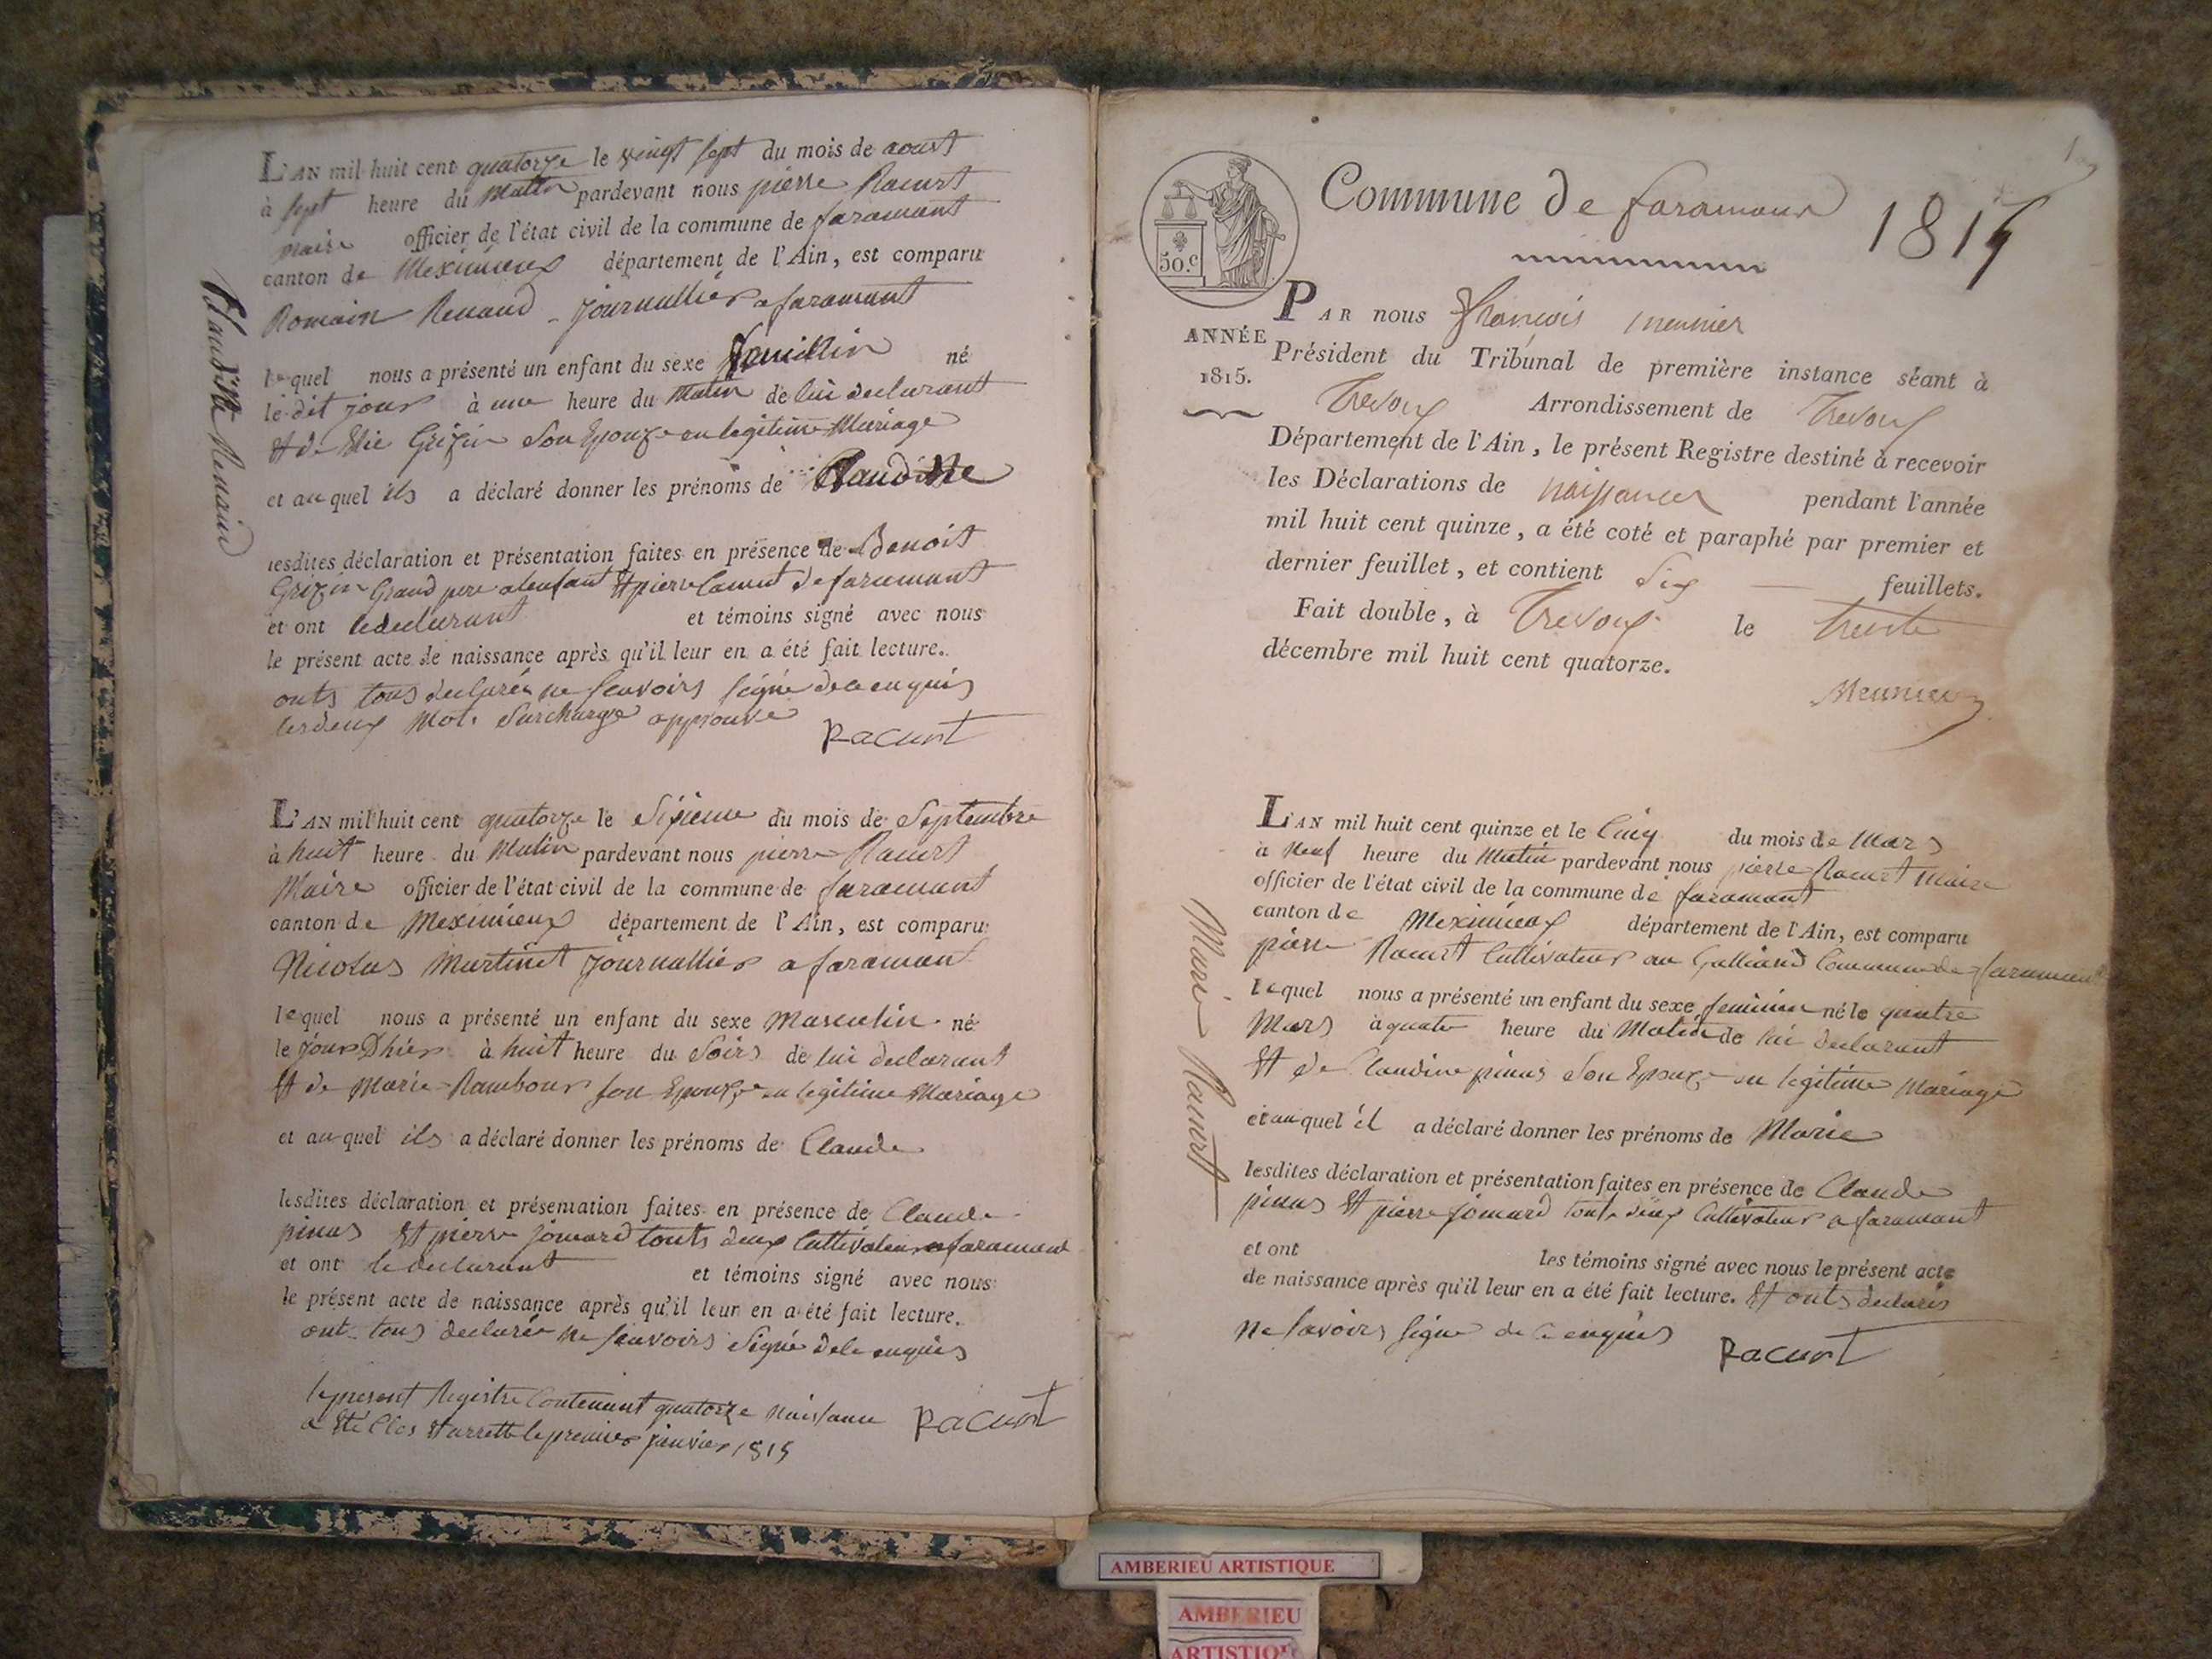 L'AN mil huit cent quatorze le vingt sept du mois de aoust
à sept heure du Matin pardevant nous pierre Racurt
maire officier de l'état civil de la commune de faramant
canton de Meximieux département de l'Ain, est comparu
Romain Renaud journallier a faramant
lequel nous a présenté un enfant du sexe né
le dit jour à une heure du Matin de lui declarant
Et de Grizin Son Epouze en legitime Mariage
et au quel ils a déclaré donner les prénoms de Claudine
lesdites déclaration et présentation faites en présence de Benoit
Grizin Grand pere alenfant Et pierre de faramant
et ont le declarant et témoins signé avec nous
le présent acte de naissance après qu'il leur en a été fait lecture.
onts tous declarés ne Scavoirs signé de ce enquis
les deux Mots Surchargé approuvé
Racurt
Renaud
L'AN mil huit cent quatorze le Sixieme du mois de Septembre
à huit heure du Matin pardevant nous pierre Racurt
Maire officier de l'état civil de la commune de faramant
canton de Meximieux département de l'Ain, est comparu
Nicolas Martinet journallier a faramant
lequel nous a présenté un enfant du sexe Masculin né
le jour Dhier à huit heure du Soirs de lui declarant
Et de Marie Rambour son Epouze en legitime Mariage
et au quel ils a déclaré donner les prénoms de Claude
lesdites déclaration et présentation faites en présence de Claude
pinas Et pierre jomard touts deux Cultivateur a faramant
et ont le declarant et témoins signé avec nous
le présent acte de naissance après qu'il leur en a été fait lecture.
ont tous declarés ne Scavoirs Signé de ce enquis
le present Registre Contenant quatorze naissance
a Eté Clos Et arretté le premier janvier 1815
Racurt
Commune de faramans
1815
50.c
ANNÉE
1815.
PAR nous françois meunier
Président du Tribunal de première instance séant à
Trevoux Arrondissement de Trevoux
Département de l'Ain, le présent Registre destiné à recevoir
les Déclarations de naissances pendant l'année
mil huit cent quinze, a été coté et paraphé par premier et
dernier feuillet, et contient Six feuillets.
Fait double, à Trevoux le Trente
décembre mil huit cent quatorze.
Meunier
L'AN mil huit cent quinze et le Cinq du mois de Mars
à neuf heure du Matin pardevant nous pierre Racurt Maire
officier de l'état civil de la commune de faramant
canton de Meximieux département de l'Ain, est comparu
pierre Racurt Cultivateur au Galliand Commune de faramant
lequel nous a présenté un enfant du sexe feminin né le quatre
Mars à quatre heure du Matin de lui declarant
Et de Claudine pinas Son Epouze en legitime Mariage
et au quel il a déclaré donner les prénoms de Marie
lesdites déclaration et présentation faites en présence de Claude
pinas Et pierre jomard touts deux Cultivateur a faramant
et ont les témoins signé avec nous le présent acte
de naissance après qu'il leur en a été fait lecture. Et onts declarés
ne Savoirs signé de ce enquis
Racurt
Marie Racurt
AMBERIEU ARTISTIQUE
AMBERIEU
ARTISTIQUE